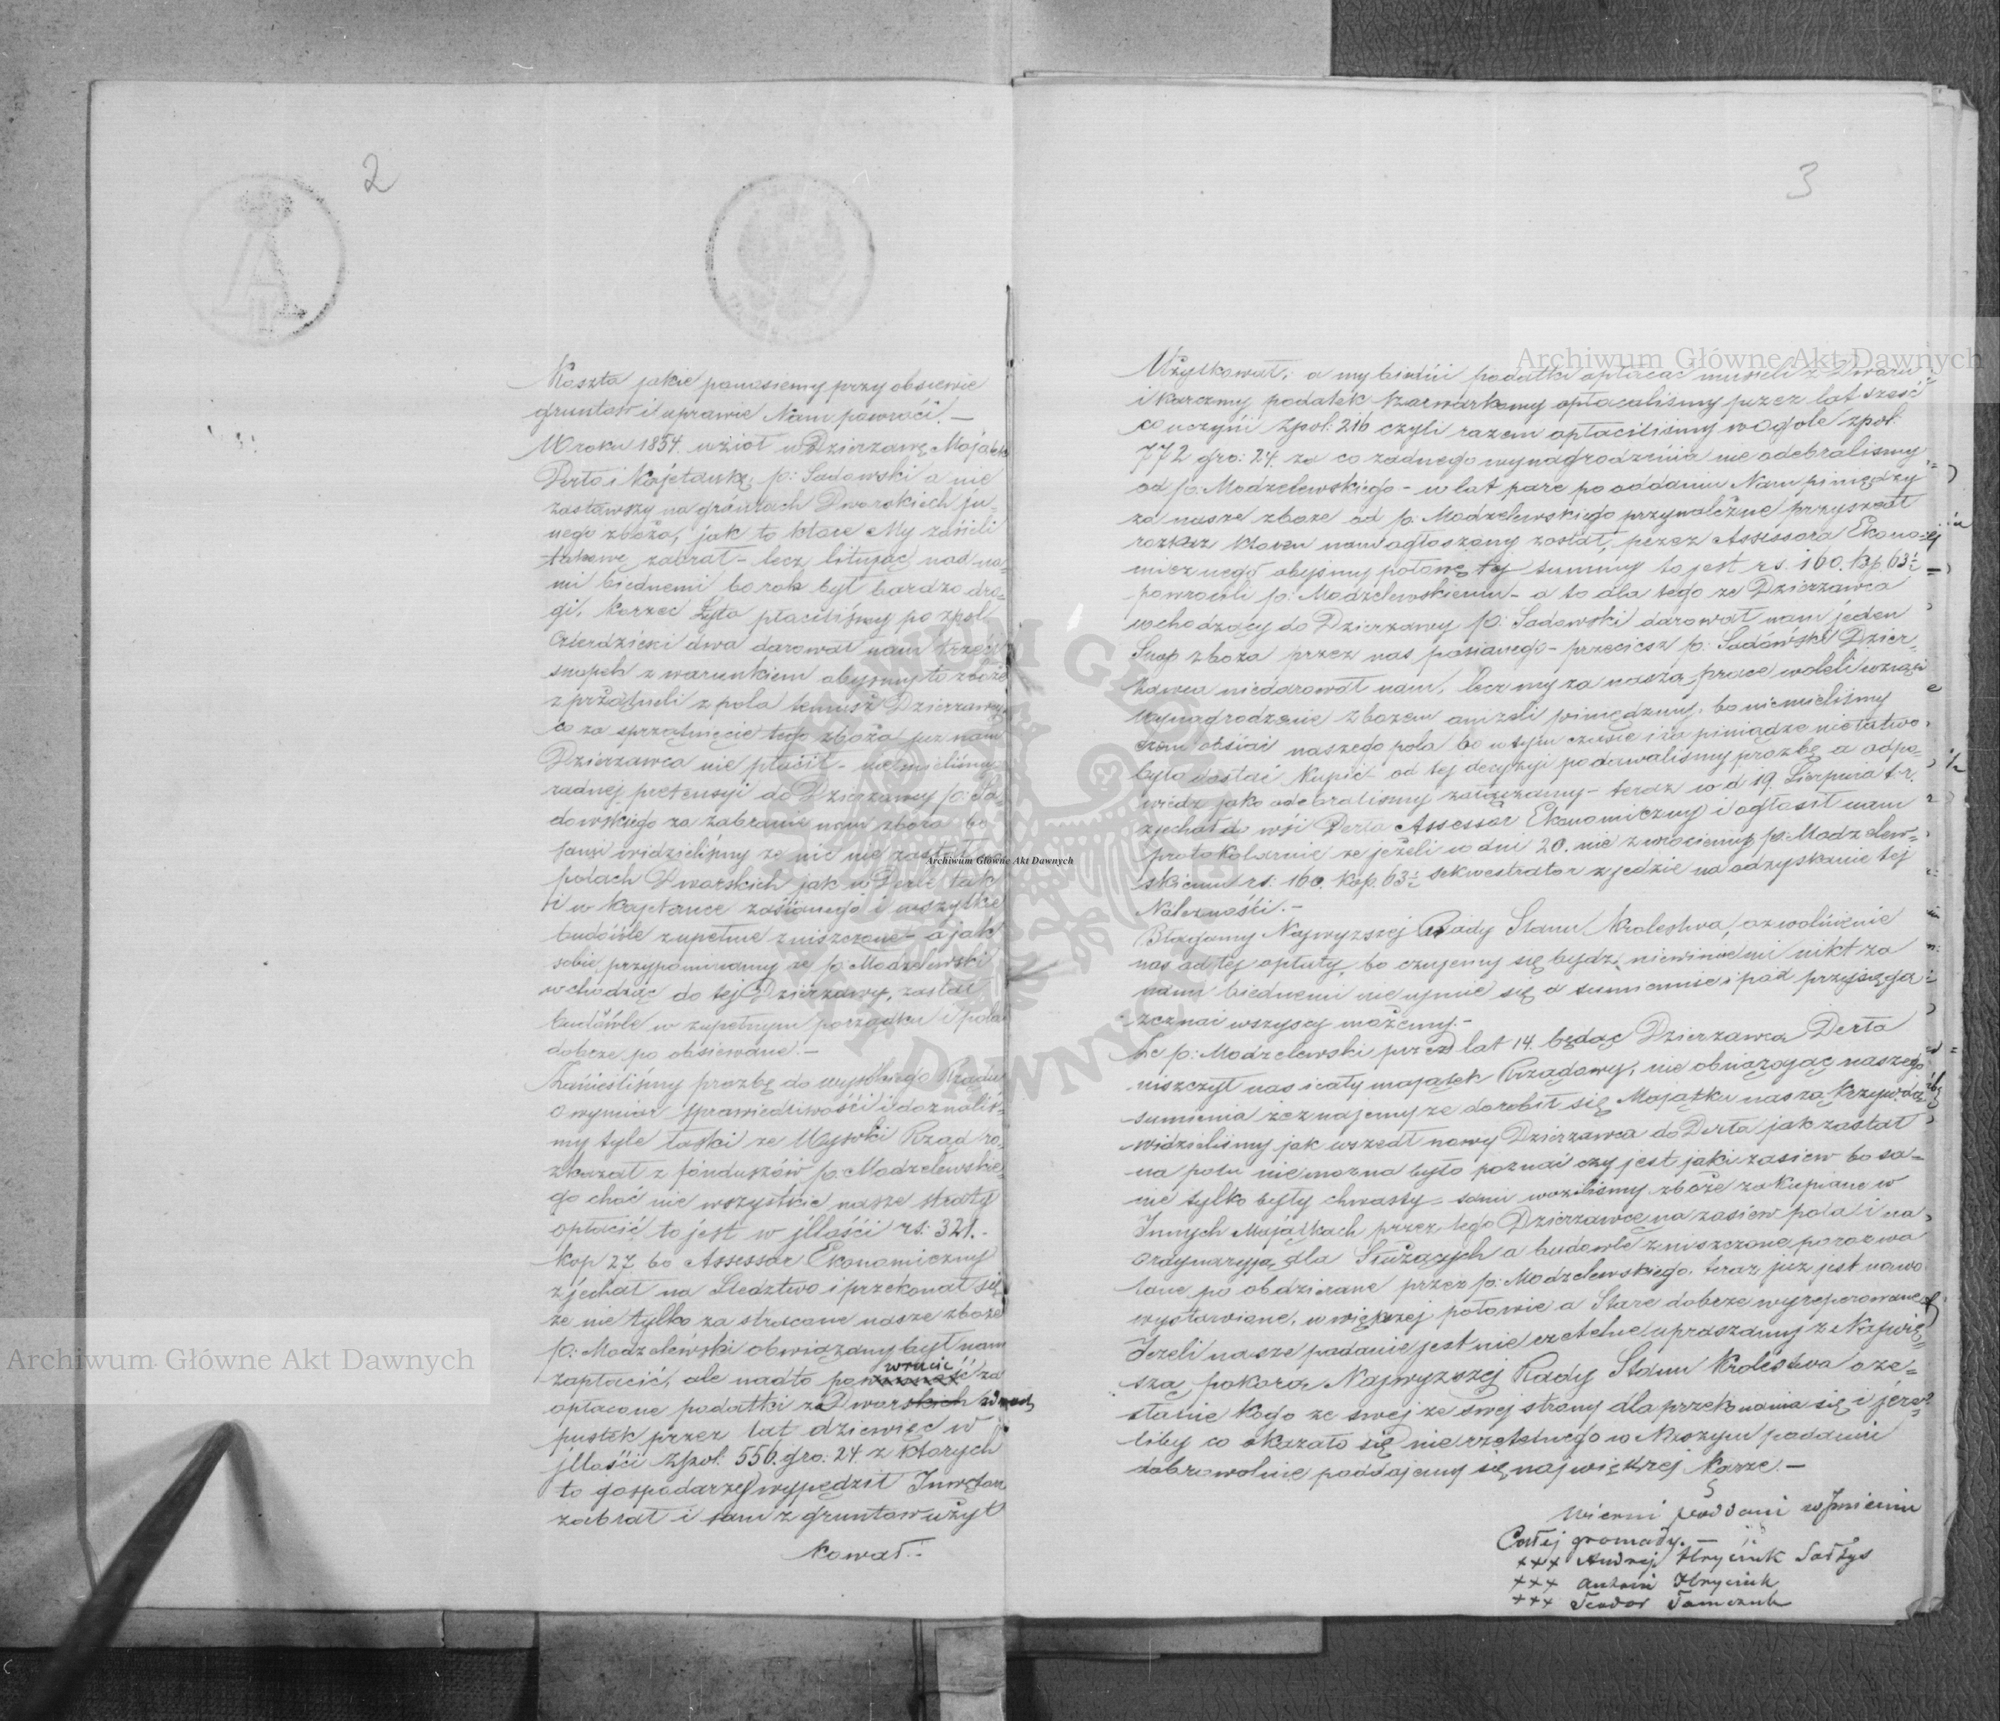 2
Koszta jakie ponosiemy przy obsiewie
gruntow i uprawie Nam powroći. —
W roku 1854. wzioł w Dzierzawę Majątek
Derło i Kajetankę p: Sadowski a nie
zastawszy na gróntach Dworskich in-
nego zboża, jak to ktore My zasieli
takowe zabrał – lecz litując nad na-
mi biednemi bo rok był bardzo dro-
gi, korzec żyta płaciliśmy po zpol:
Czterdzieści dwa darował nam trzeci
snopek z warunkiem abysmy to zboże
z prżątneli z pola temusz Dzierzawcy
co za sprzątnięcie tego zboża juz nam
Dzierżawca nie płacił – nie mieliśmy
zadnej pretensyi do Dzierzawcy p: Sa-
dowskiego za zabranie nam zboza bo
sami widzieliśmy ze nic nie zastał na
polach Dworskich jak w Derle tak
i w Kajetance zasianego i wszytkie
budowle zupełnie zniszczone – a jak
sobie przypominamy ze p: Modzelewski
wchodząc do tej Dzierzawy, zastał
budowle w zupełnym porządku i pola
dobrze po obsiewane. —
Zanieśliśmy prozbę do wysokiego Rządu
o wymiar sprawiedliwośći i doznaliś-
my tyle łaski ze Wysoki Rząd ro-
zkazał z fonduszów p: Modzelewskie-
go choć nie wszystkie nasze straty
opłacić to jest w jllośći rs: 321.-
kop 27 bo Assessor Ekonomiczny
zjechał na Sledztwo i przekonał się
ze nie tylko za stracone nasze zboże
p: Modzelewski obwiązany był nam
wrucic
zapłacić, ale nadto po za
opłacone podatki z Dworskich
pustek przez lat dziewięc w
jllośći zpol: 556. gro: 24 z ktorych
to gospodarzey wypędził Inwętarz
zabrał i sam z gruntow użyt
kował.-
3
Użytkował; a my biedni podatki opłacać museli z Dworu
i Karczmy podatek Szarwarkowy opłacalismy przez lat sześć
co uczyni zpol: 216 czyli razem opłacilismy wogole zpol:
772 gro: 24. za co zadnego wynagrodzenia nie odebralismy
od p: Modzelewskiego – w lat pare po oddaniu Nam piniędzy
za nasze zboze od p: Modzelewskiego przynalezne przyszedł
rozkaz ktoren nam ogłoszony został, przez Assessora Ekono-
micznego abyśmy połowę tej summy to jest rs. 160. kop 63½
powrocili p: Modzelewskiemu – a to dla tego ze Dzierzawca
wchodzący do Dzierzawy p: Sadowski darował nam jeden
Snop zboza przez nas posianego – przeciesz p: Sadowski Dzier-
zawca niedarował nam, lecz my za naszą prace woleli wziąść
wynagrodzenie zbozem anizeli piniędzmy, bo niemieliśmy
czem obsiać naszego pola bo w tym czasie i za piniądze nie łatwo
było dostać kupić – od tej decyzyi podawalismy prozbę a odpo-
wiedz jako odebralismy załączamy – teraz w d 19. Sierpnia t.r.
zjechał do wśi Derła Assessor Ekonomiczny i ogłosił nam
protokólarnie ze jeżeli w dni 20. nie zwrociemy p: Modzelew-
skiemu rs: 160. kop. 63½ sekwestrator zjedzie na odzyskanie tej
Nalezności.-
Błagamy Najwyzszej Rady Stanu Krolestwa, o zwolnienie
nas od tej opłaty, bo czujemy się bydz niewinnemi nikt za
nami biednemi nie ujmie się a sumiennie i pod przysięga
zeznai wszyscy możemy.-
Ze p: Modzelewski przez lat 14. będąc Dzierzawca Derła
niszczył nas i cały majątek Rządowy, nie obrażając naszego
sumienia zeznajemy ze dorobił się Majątku naszą krzywdą
widzieliśmy jak wszedł nowy Dzierzawca do Derła jak zastał
na polu nie mozna było poznai czy jest jaki zasiew bo sa-
me tylko były chwasty – sami wozilismy zboże zakupione w
Innych Majątkach przez tego Dzierzawcę na zasiew pola i na
ordynaryją dla Służących a budowle zniszczone porozwa
lane po obdzierane przez p: Modzelewskiego. teraz juz jest nowo
wystawione, w większej połowie a Stare dobrze wyreperowane
Jezeli nasze podanie jest nie rzetelne upraszamy z Najwię-
szą pokorą Najwyzszej Rady Stanu Krolestwa o ze-
słanie kogo ze swej ze swej strony dla przekonania się i jeze-
liby co okazało się nie rzetelnego w Naszym podaniu
dobrowolnie poddajemy się największej karze.—
Wierni poddani w Imieniu
Całej gromady.—
+++ Andrej Hryciuk Sołtys
+++ Antoni Hryciuk
+++ Teodor Tomczuk
Archiwum Główne Akt Dawnych
Archiwum Główne Akt Dawnych
Archiwum Główne Akt Dawnych